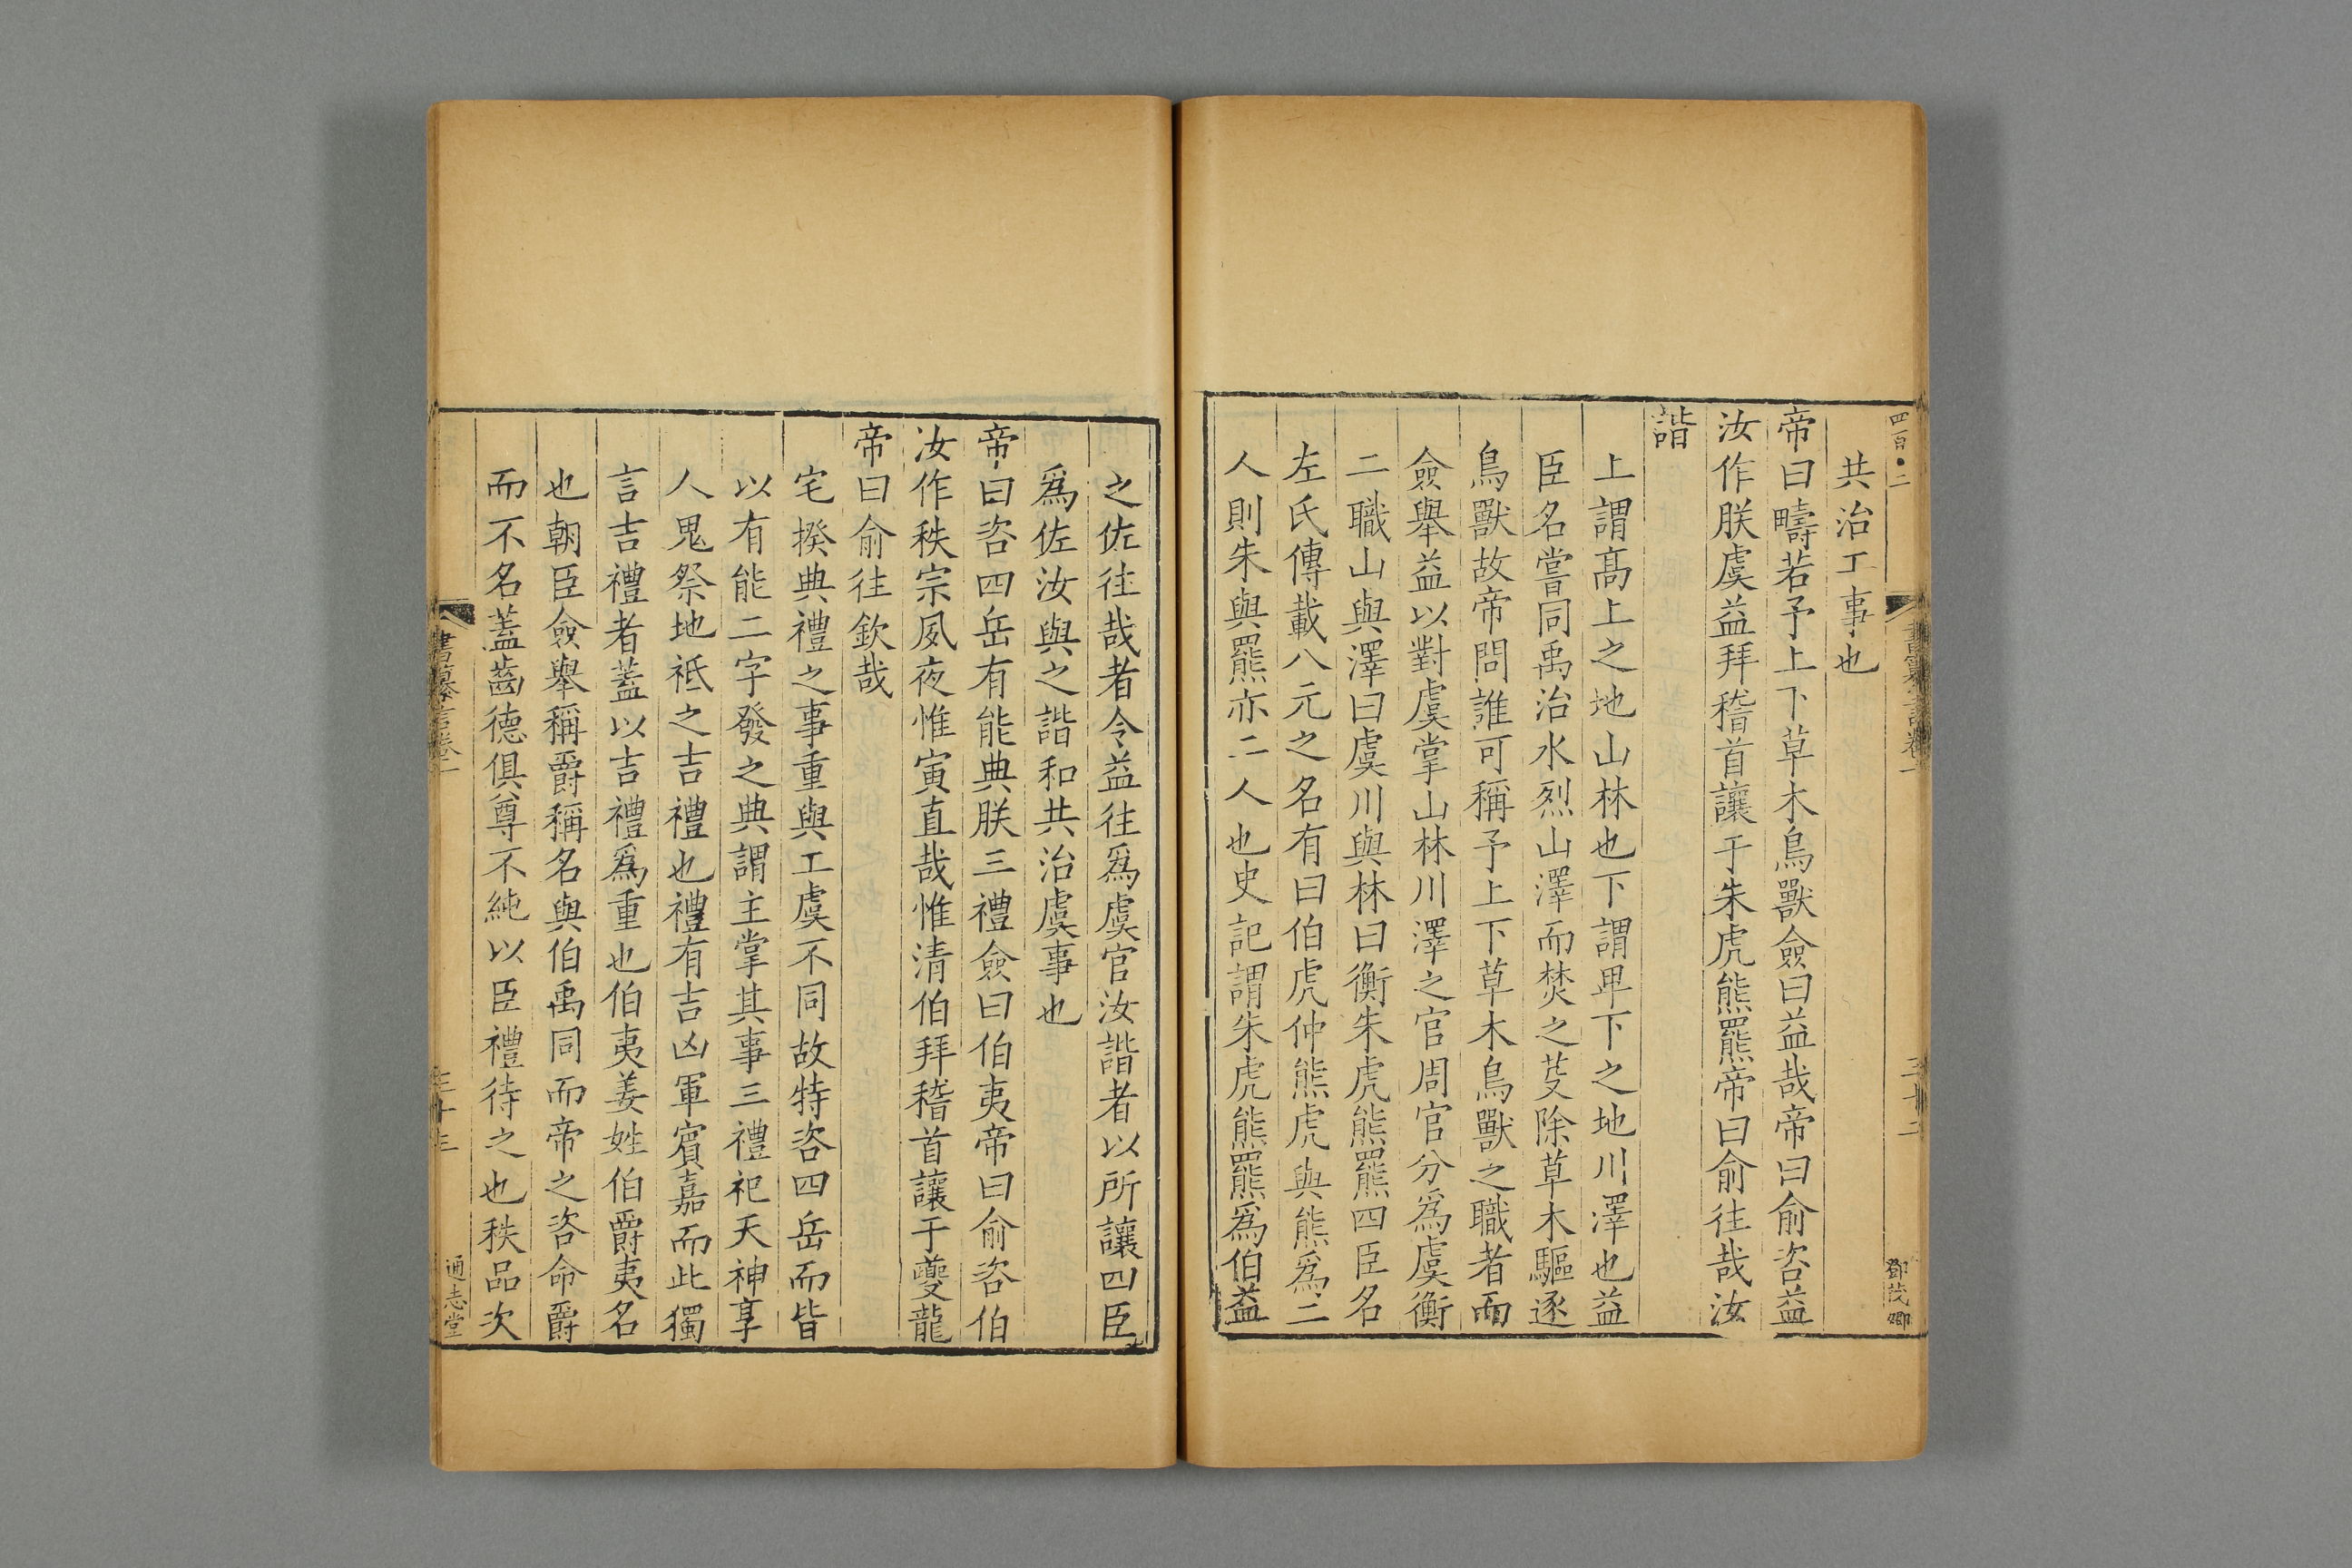 四百●二
共治工事也
帝曰疇若予上下草木鳥獸僉曰益哉帝曰俞咨益
汝作朕虞益拜稽首讓于朱虎熊羆帝曰俞往哉汝
諧
上謂髙上之地山林也下謂卑下之地川澤也益
臣名嘗同禹治水烈山澤而焚之芟除草木驅逐
鳥獸故帝問誰可稱予上下草木鳥獸之職者而
僉舉益以對虞掌山林川澤之官周官分爲虞衡
二職山與澤曰虞川與林曰衡朱虎熊羆四臣名
左氏傳載八元之名有曰伯虎仲熊虎與熊爲二
人則朱與羆亦二人也史記謂朱虎熊羆爲伯益
鄧茂卿
之佐往哉者令益往爲虞官汝諧者以所讓四臣
爲佐汝與之諧和共治虞事也
帝曰咨四岳有能典朕三禮僉曰伯夷帝曰俞咨伯
汝作秩宗夙夜惟寅直哉惟清伯拜稽首讓于夔龍
帝曰俞往欽哉
宅揆典禮之事重與工虞不同故特咨四岳而皆
以有能二字發之典謂主掌其事三禮祀天神享
人鬼祭地祗之吉禮也禮有吉凶軍賓嘉而此獨
言吉禮者蓋以吉禮爲重也伯夷姜姓伯爵夷名
也朝臣僉舉稱爵稱名與伯禹同而帝之咨命爵
而不名蓋齒德俱尊不純以臣禮待之也秩品次
書纂言卷一
三十三
通志堂